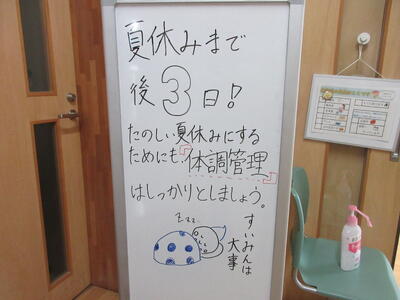 夏休みまで
後3日!!
たのしい夏休みにする
ためにも、体調管理
はしっかりとしましょう。
zzz...
すいみんは
大事